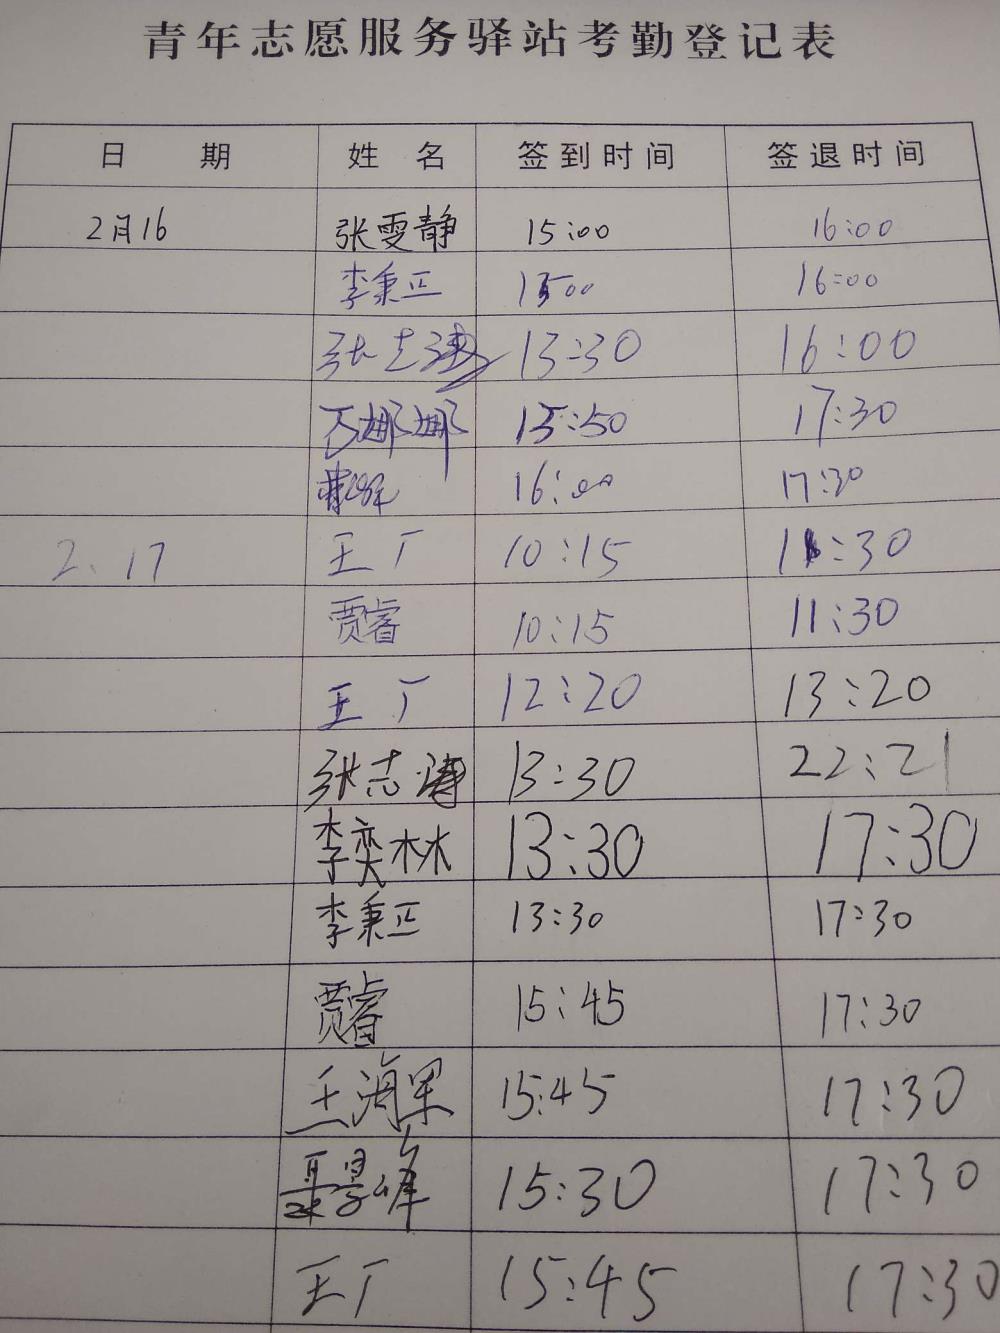 青年志愿服务驿站考勤登记表
日 期 姓 名 签到时间 签退时间
2月16 张雯静 15:00 16:00
李秉正 1500 16:00
张志涛 13:30 16:00
万娜娜 15:50 17:30
16:00 17:30
2、17 王厂 10:15 11:30
贾睿 10:15 11:30
王厂 12:20 13:20
张志涛 13:30 22:21
李奕林 13:30 17:30
李秉正 13:30 17:30
贾睿 15:45 17:30
王海军 15:45 17:30
聂景峰 15:30 17:30
王厂 15:45 17:30